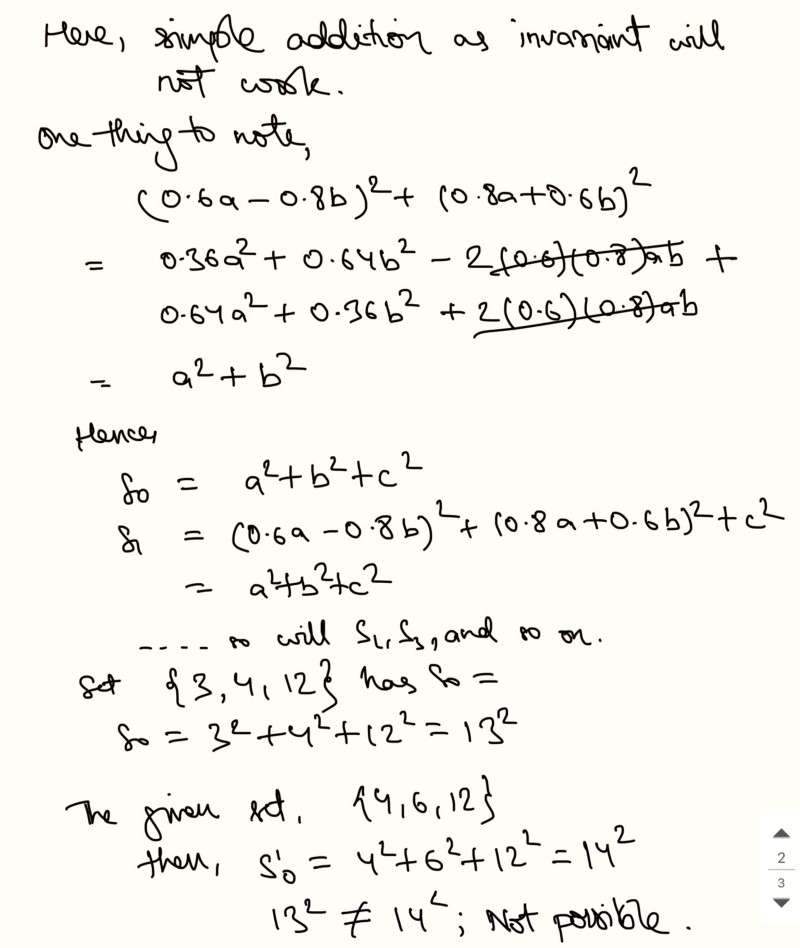 Here, simple addition as invariant will
not work.
one thing to note,
(0.6a - 0.8b)² + (0.8a+0.6b)²
= 0.36a² + 0.64b² - 2(0.6)(0.8)ab +
0.64a² + 0.36b² + 2(0.6)(0.8)ab
= a² + b²
Hence,
S₀ = a²+b²+c²
S₁ = (0.6a - 0.8b)² + (0.8a+0.6b)² + c²
= a²+b²+c²
---- so will S₂, S₃, and so on.
Set {3, 4, 12} has S₀ =
S₀ = 3²+4²+12² = 13²
The given set, {4, 6, 12}
then, S'₀ = 4²+6²+12² = 14²
13² ≠ 14²; Not possible.
2
3